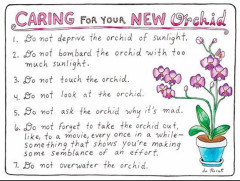 CARING FOR YOUR NEW Orchid
1. Do not deprive the orchid of sunlight.
2. Do not bombard the orchid with too
much sunlight.
3. Do not touch the orchid.
4. Do not look at the orchid.
5. Do not ask the orchid why it's mad.
6. Do not forget to take the orchid out,
like, to a movie, every once in a while–
something that shows you're making
some semblance of an effort.
7. Do not overwater the orchid.